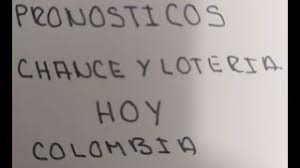 PRONOSTICOS
CHANCE Y LOTERIA
HOY
COLOMBIA